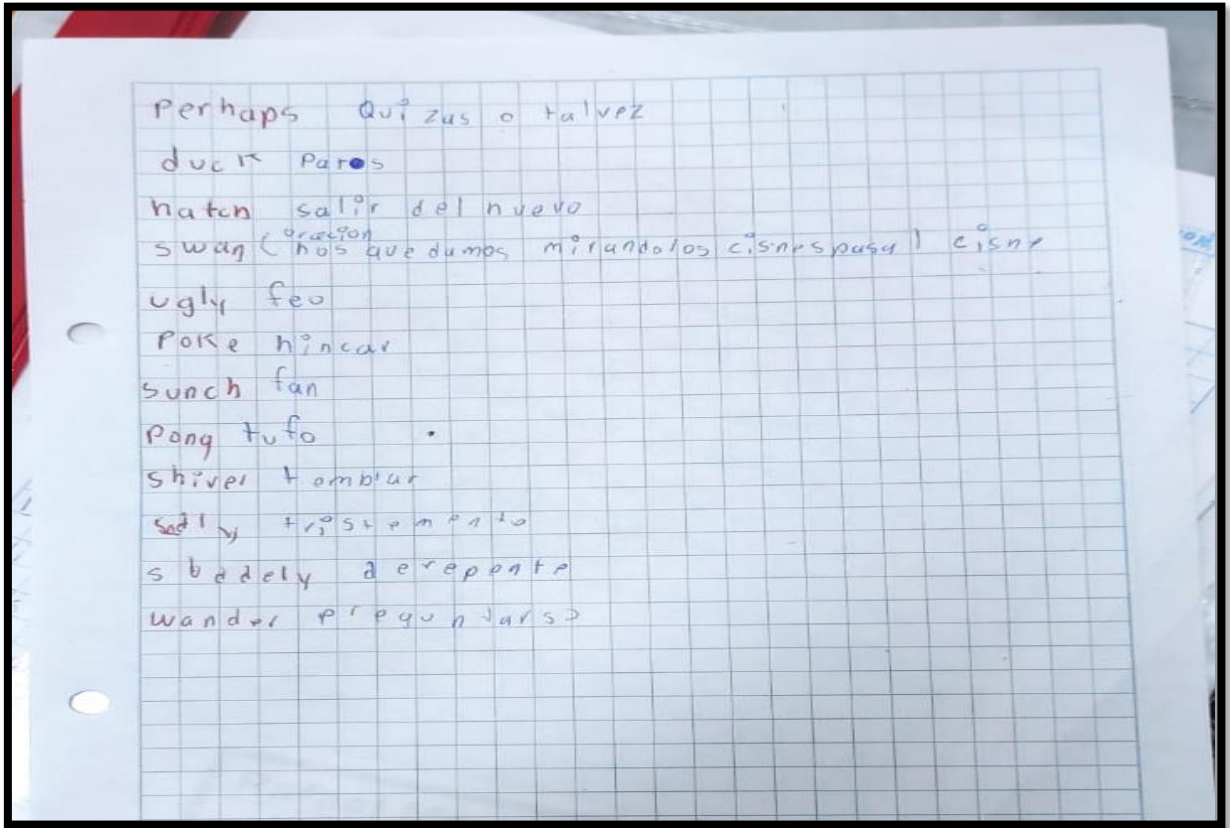 Perhaps Quizas o talvez
duck Patos
hatch salir del huevo
swan (oracion nos quedamos mirandolos cisnes pasa) cisne
ugly feo
Poke hincar
sunch fan
Pong tufo
shiver temblar
Sadly tristemente
sbddely derepente
wander preguntarse